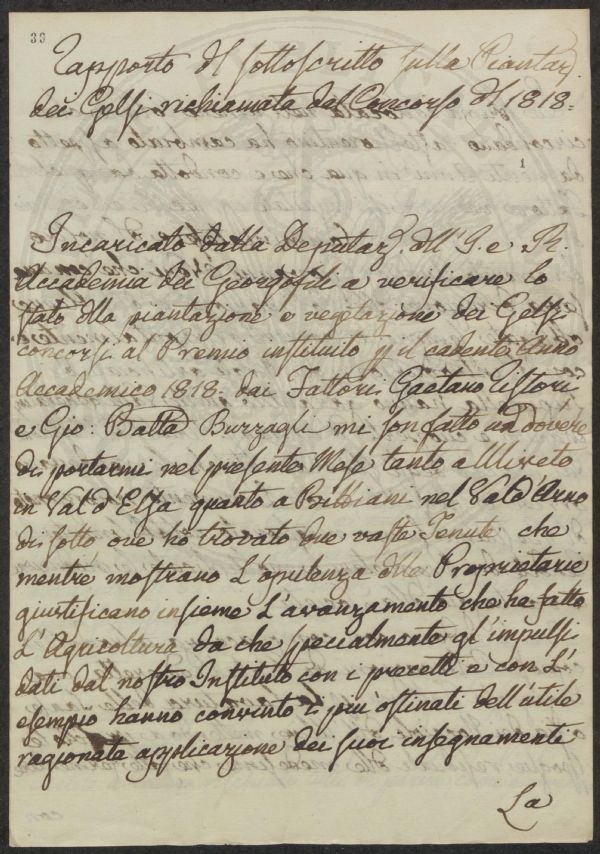 39
Rapporto del sottoscritto sulla Piantaz.
dei Gelsi richiamata dal Concorso del 1818=
1
Incaricato dalla Deputaz. dell' I. e R.
Accademia dei Georgofili a verificare lo
stato della piantazione e vegetazione dei Gelsi
concorsi al Premio instituito p il cadente Anno
Accademico 1818 dai Fattori Gaetano Pistori
e Gio: Batta Burzagli mi son fatto un dovere
di portarmi nel presente Mese tanto a Uliveto
in Val d'Elsa quanto a Bibbiani nel Vald'Arno
di sotto ove ho trovato due vaste Tenute che
mentre mostrano l'opulenza delle Proprietarie
giustificano insieme l'avanzamento che ha fatto
l'Agricoltura da che specialmente gl'impulsi
dati dal nostro Instituto con i precetti e con l'
esempio hanno convinto i più ostinati dell'utile
ragionata applicazione dei suoi insegnamenti
La